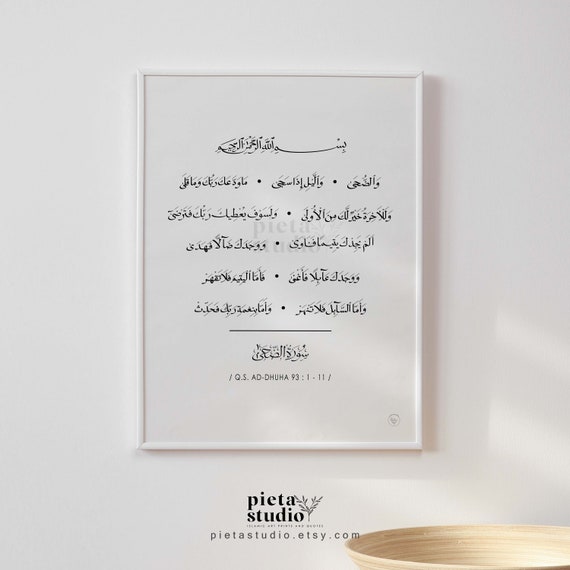 بِسْمِ ٱللَّهِ ٱلرَّحْمَٰنِ ٱلرَّحِيمِ
وَالضُّحَىٰ • وَالَّيْلِ إِذَا سَجَىٰ • مَا وَدَّعَكَ رَبُّكَ وَمَا قَلَىٰ
وَلَلْآخِرَةُ خَيْرٌ لَّكَ مِنَ الْأُولَىٰ • وَلَسَوْفَ يُعْطِيكَ رَبُّكَ فَتَرْضَىٰ
أَلَمْ يَجِدْكَ يَتِيمًا فَآوَىٰ • وَوَجَدَكَ ضَآلًّا فَهَدَىٰ
وَوَجَدَكَ عَآئِلًا فَأَغْنَىٰ • فَأَمَّا الْيَتِيمَ فَلَا تَقْهَرْ
وَأَمَّا السَّآئِلَ فَلَا تَنْهَرْ • وَأَمَّا بِنِعْمَةِ رَبِّكَ فَحَدِّثْ
سُورَةُ الضُّحَىٰ
/ Q.S. AD-DHUHA 93 : 1 - 11 /
pieta
studio
pieta
studio
ISLAMIC ART PRINTS AND QUOTES
pietastudio.etsy.com